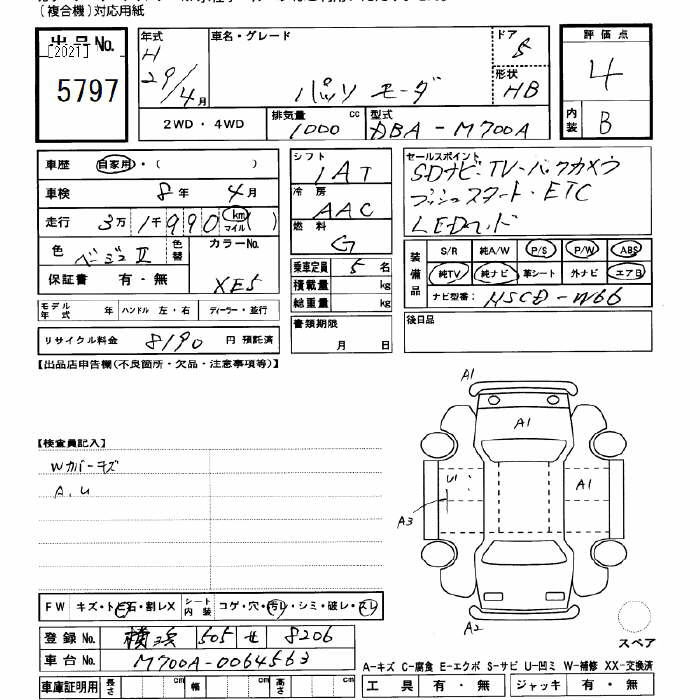 (複合機)対応用紙
出品No.
[2021]
5797
年式 H 29/4月
車名・グレード
パッソ モーダ
ドア 5
形状 HB
2WD・4WD
排気量 1000 cc
型式 DBA-M700A
評価点
4
内装 B
車歴 自家用・( )
車検 8年 4月
走行 3万1千990 km マイル ( )
色 ベージュⅡ 色替
カラーNo. XE5
保証書 有・無
モデル年式 年 ハンドル 左・右 ディーラー・並行
リサイクル料金 8190 円 預託済
シフト IAT
冷房 AAC
燃料 G
乗車定員 5 名
積載量 kg
総重量 kg
書類期限
月 日
セールスポイント
SDナビ・TV・バックカメラ
プッシュスタート・ETC
LEDヘッド
装備品
S/R 純A/W P/S P/W ABS
純TV 純ナビ 革シート 外ナビ エアB
ナビ型番: NSCD-W66
後日品
【出品店申告欄(不良箇所・欠品・注意事項等)】
【検査員記入】
Wカバーキズ
A.U
A1
A1
U
A1
A3
A2
スペア
FW キズ・ト ビ石・割レX シート内装 コゲ・穴・汚レ・シミ・破レ・スレ
登録No. 横浜 505 せ 8206
車台No. M700A-0064563
車庫証明用 長さ cm 幅 cm 高さ cm
A-キズ C-腐食 E-エクボ S-サビ U-凹ミ W-補修 XX-交換済
工具 有・無 ジャッキ 有・無